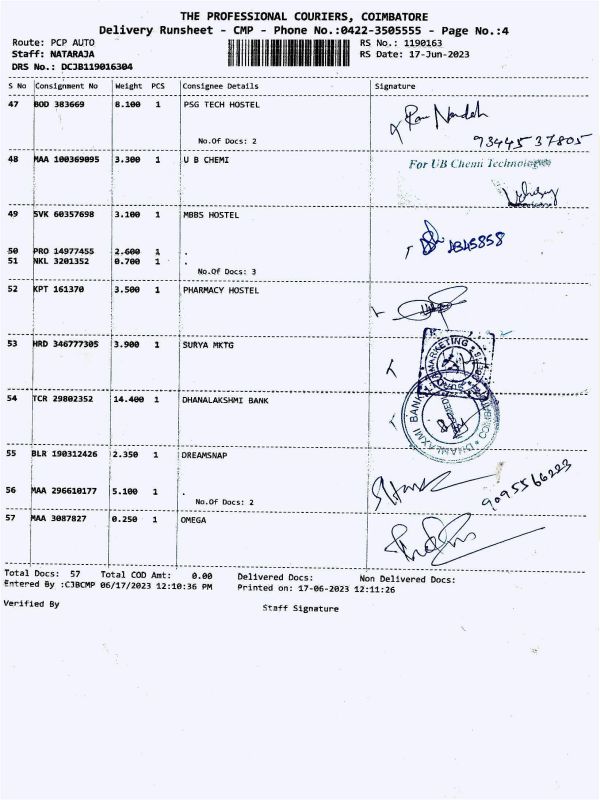 THE PROFESSIONAL COURIERS, COIMBATORE
Delivery Runsheet - CMP - Phone No.:0422-3505555 - Page No.:4
Route: PCP AUTO RS No.: 1190163
Staff: NATARAJA RS Date: 17-Jun-2023
DRS No.: DCJB119016304
S No Consignment No Weight PCS Consignee Details Signature
47 BOD 383669 8.100 1 PSG TECH HOSTEL
No.Of Docs: 2 93445 37805
48 MAA 100369095 3.300 1 U B CHEMI For UB Chemi Technologies
49 SVK 60357698 3.100 1 MBBS HOSTEL
50 PRO 14977455 2.600 1 .
51 NKL 3201352 0.700 1 .
No.Of Docs: 3
52 KPT 161370 3.500 1 PHARMACY HOSTEL
53 HRD 346777305 3.900 1 SURYA MKTG
MARKETING
54 TCR 29802352 14.400 1 DHANALAKSHMI BANK
DHANLAXMI BANK
55 BLR 190312426 2.350 1 DREAMSNAP
56 MAA 296610177 5.100 1 .
No.Of Docs: 2 9095566223
57 MAA 3087827 0.250 1 OMEGA
Total Docs: 57 Total COD Amt: 0.00 Delivered Docs: Non Delivered Docs:
Entered By :CJBCMP 06/17/2023 12:10:36 PM Printed on: 17-06-2023 12:11:26
Verified By Staff Signature